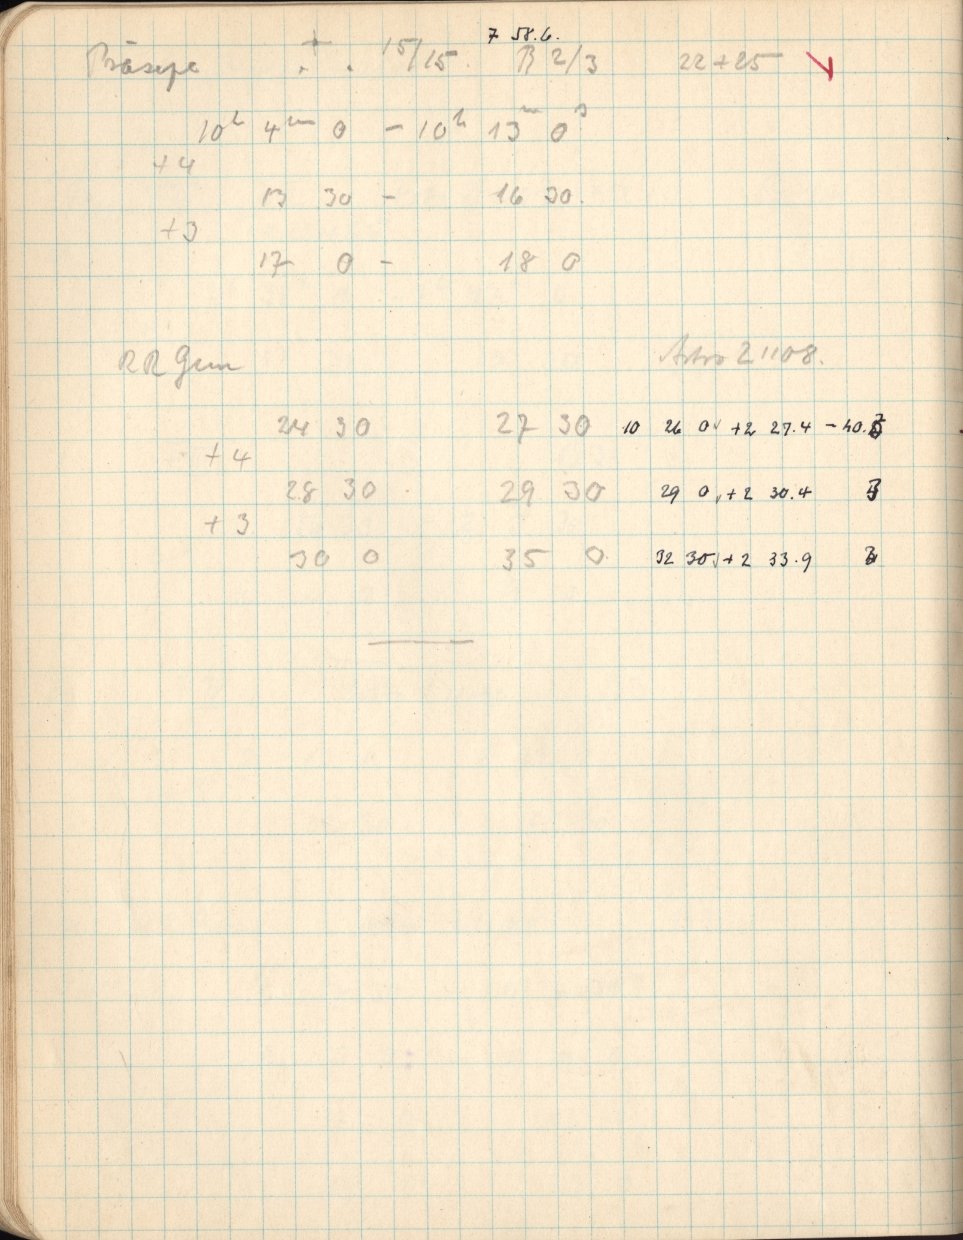 7 58.6.
Präsepe 15/15. B 2/3 22+25
10h 4m 0 - 10h 13m 0s
+4
13 30 - 16 30.
+3
17 0 - 18 0
RR Gem 21108.
24 30 27 30 10 26 0 +2 27.4 -40.
+4
28 30 29 30 29 0 +2 30.4
+3
30 0 35 0 32 30 +2 33.9